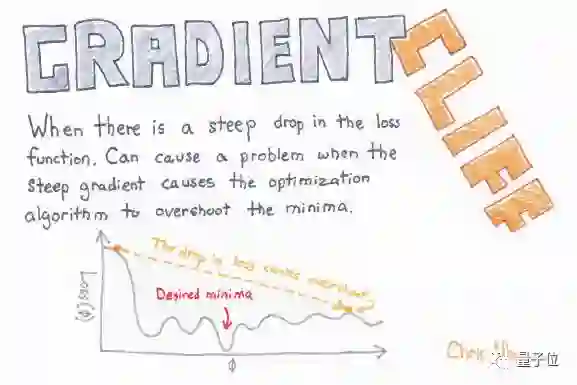 GRADIENT CLIFF
When there is a steep drop in the loss
function. Can cause a problem when the
steep gradient causes the optimization
algorithm to overshoot the minima.
The drop in loss causes overshoot
Desired minima
Loss(φ)
φ
Chris
量子位